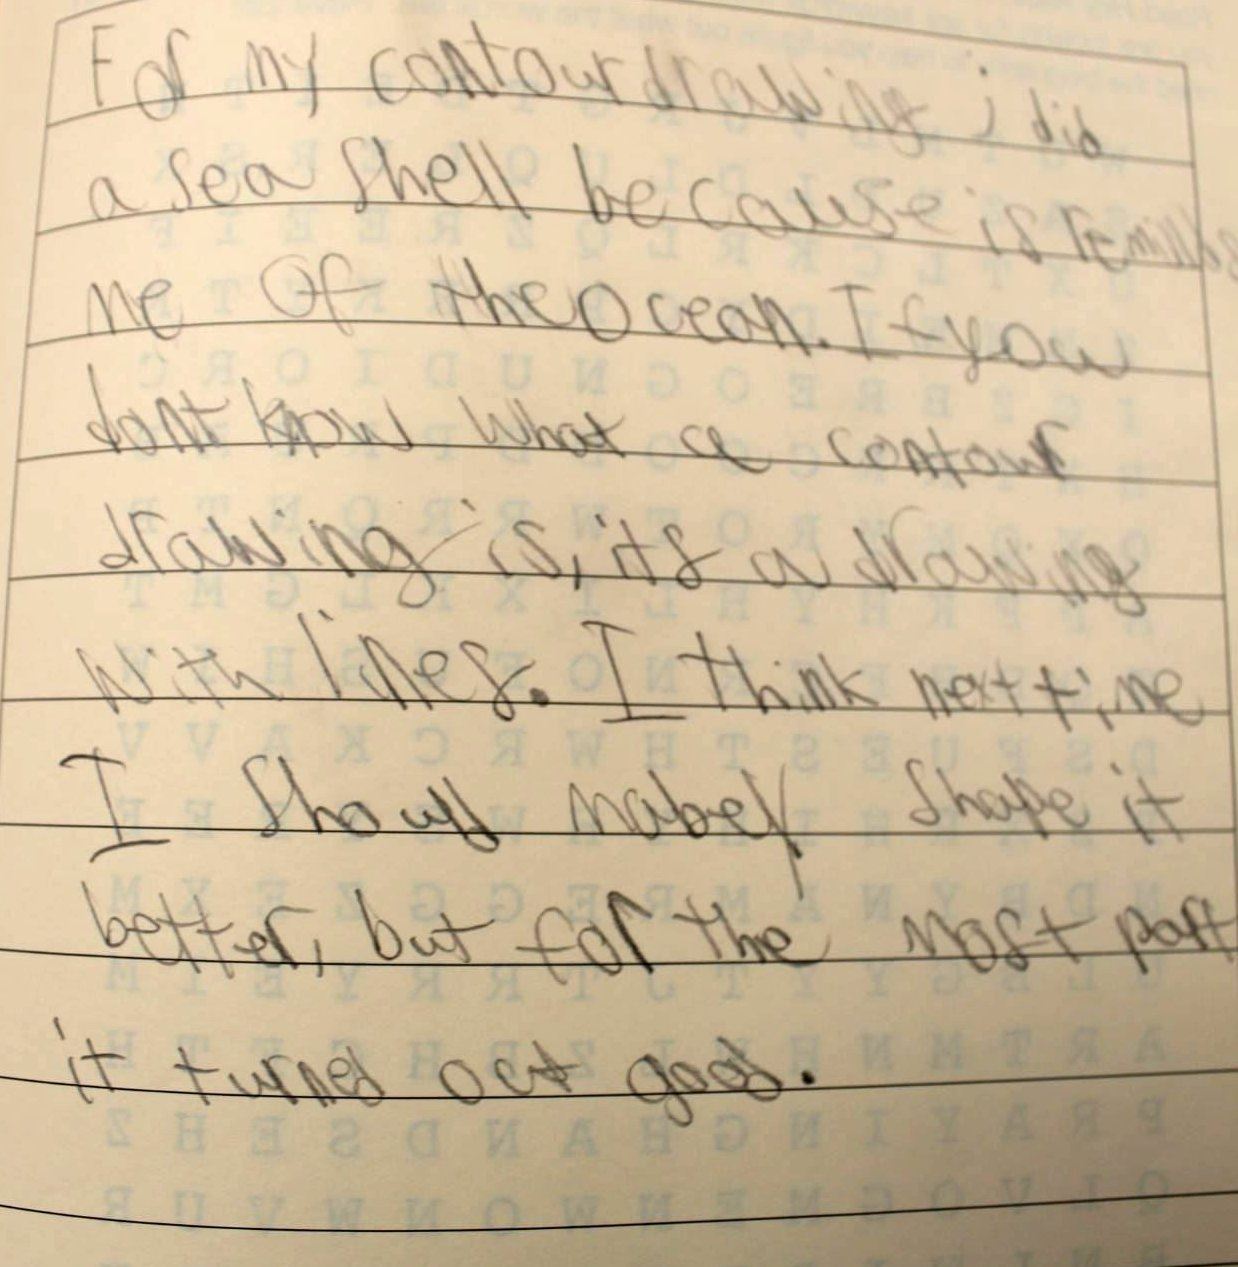 For my contour drawing i did
a sea shell because is reminds
me of the ocean. If you
dont know what a contour
drawing is, its a drawing
with lines. I think next time
I should mabey shape it
better, but for the most part
it turned out good.